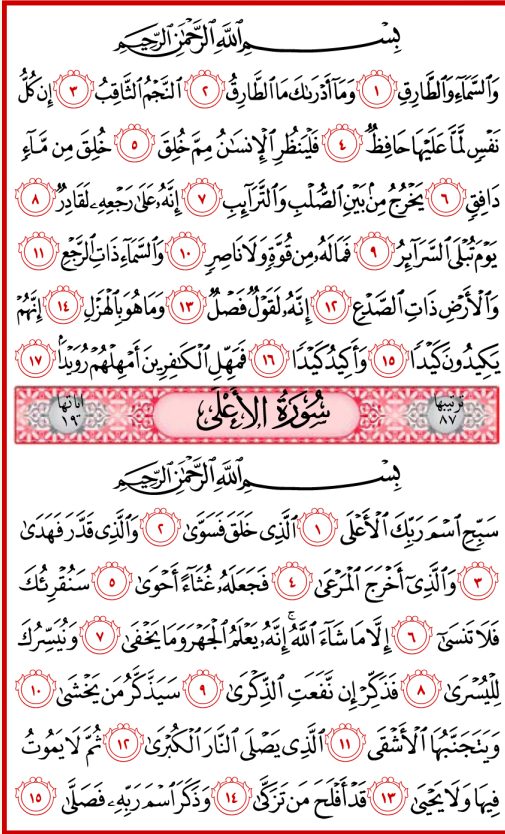 بِسْمِ ٱللَّهِ ٱلرَّحْمَٰنِ ٱلرَّحِيمِ
وَٱلسَّمَآءِ وَٱلطَّارِقِ ١ وَمَآ أَدْرَىٰكَ مَا ٱلطَّارِقُ ٢ ٱلنَّجْمُ ٱلثَّاقِبُ ٣ إِن كُلُّ
نَفْسٍ لَّمَّا عَلَيْهَا حَافِظٌ ٤ فَلْيَنظُرِ ٱلْإِنسَٰنُ مِمَّ خُلِقَ ٥ خُلِقَ مِن مَّآءٍ
دَافِقٍ ٦ يَخْرُجُ مِنۢ بَيْنِ ٱلصُّلْبِ وَٱلتَّرَآئِبِ ٧ إِنَّهُۥ عَلَىٰ رَجْعِهِۦ لَقَادِرٌ ٨
يَوْمَ تُبْلَى ٱلسَّرَآئِرُ ٩ فَمَا لَهُۥ مِن قُوَّةٍ وَلَا نَاصِرٍ ١٠ وَٱلسَّمَآءِ ذَاتِ ٱلرَّجْعِ ١١
وَٱلْأَرْضِ ذَاتِ ٱلصَّدْعِ ١٢ إِنَّهُۥ لَقَوْلٌ فَصْلٌ ١٣ وَمَا هُوَ بِٱلْهَزْلِ ١٤ إِنَّهُمْ
يَكِيدُونَ كَيْدًا ١٥ وَأَكِيدُ كَيْدًا ١٦ فَمَهِّلِ ٱلْكَٰفِرِينَ أَمْهِلْهُمْ رُوَيْدًۢا ١٧
ترتيبها ٨٧ سُورَةُ الأَعْلَى اياتها ١٩
بِسْمِ ٱللَّهِ ٱلرَّحْمَٰنِ ٱلرَّحِيمِ
سَبِّحِ ٱسْمَ رَبِّكَ ٱلْأَعْلَى ١ ٱلَّذِى خَلَقَ فَسَوَّىٰ ٢ وَٱلَّذِى قَدَّرَ فَهَدَىٰ
٣ وَٱلَّذِىٓ أَخْرَجَ ٱلْمَرْعَىٰ ٤ فَجَعَلَهُۥ غُثَآءً أَحْوَىٰ ٥ سَنُقْرِئُكَ
فَلَا تَنسَىٰٓ ٦ إِلَّا مَا شَآءَ ٱللَّهُ ۚ إِنَّهُۥ يَعْلَمُ ٱلْجَهْرَ وَمَا يَخْفَىٰ ٧ وَنُيَسِّرُكَ
لِلْيُسْرَىٰ ٨ فَذَكِّرْ إِن نَّفَعَتِ ٱلذِّكْرَىٰ ٩ سَيَذَّكَّرُ مَن يَخْشَىٰ ١٠
وَيَتَجَنَّبُهَا ٱلْأَشْقَى ١١ ٱلَّذِى يَصْلَى ٱلنَّارَ ٱلْكُبْرَىٰ ١٢ ثُمَّ لَا يَمُوتُ
فِيهَا وَلَا يَحْيَىٰ ١٣ قَدْ أَفْلَحَ مَن تَزَكَّىٰ ١٤ وَذَكَرَ ٱسْمَ رَبِّهِۦ فَصَلَّىٰ ١٥